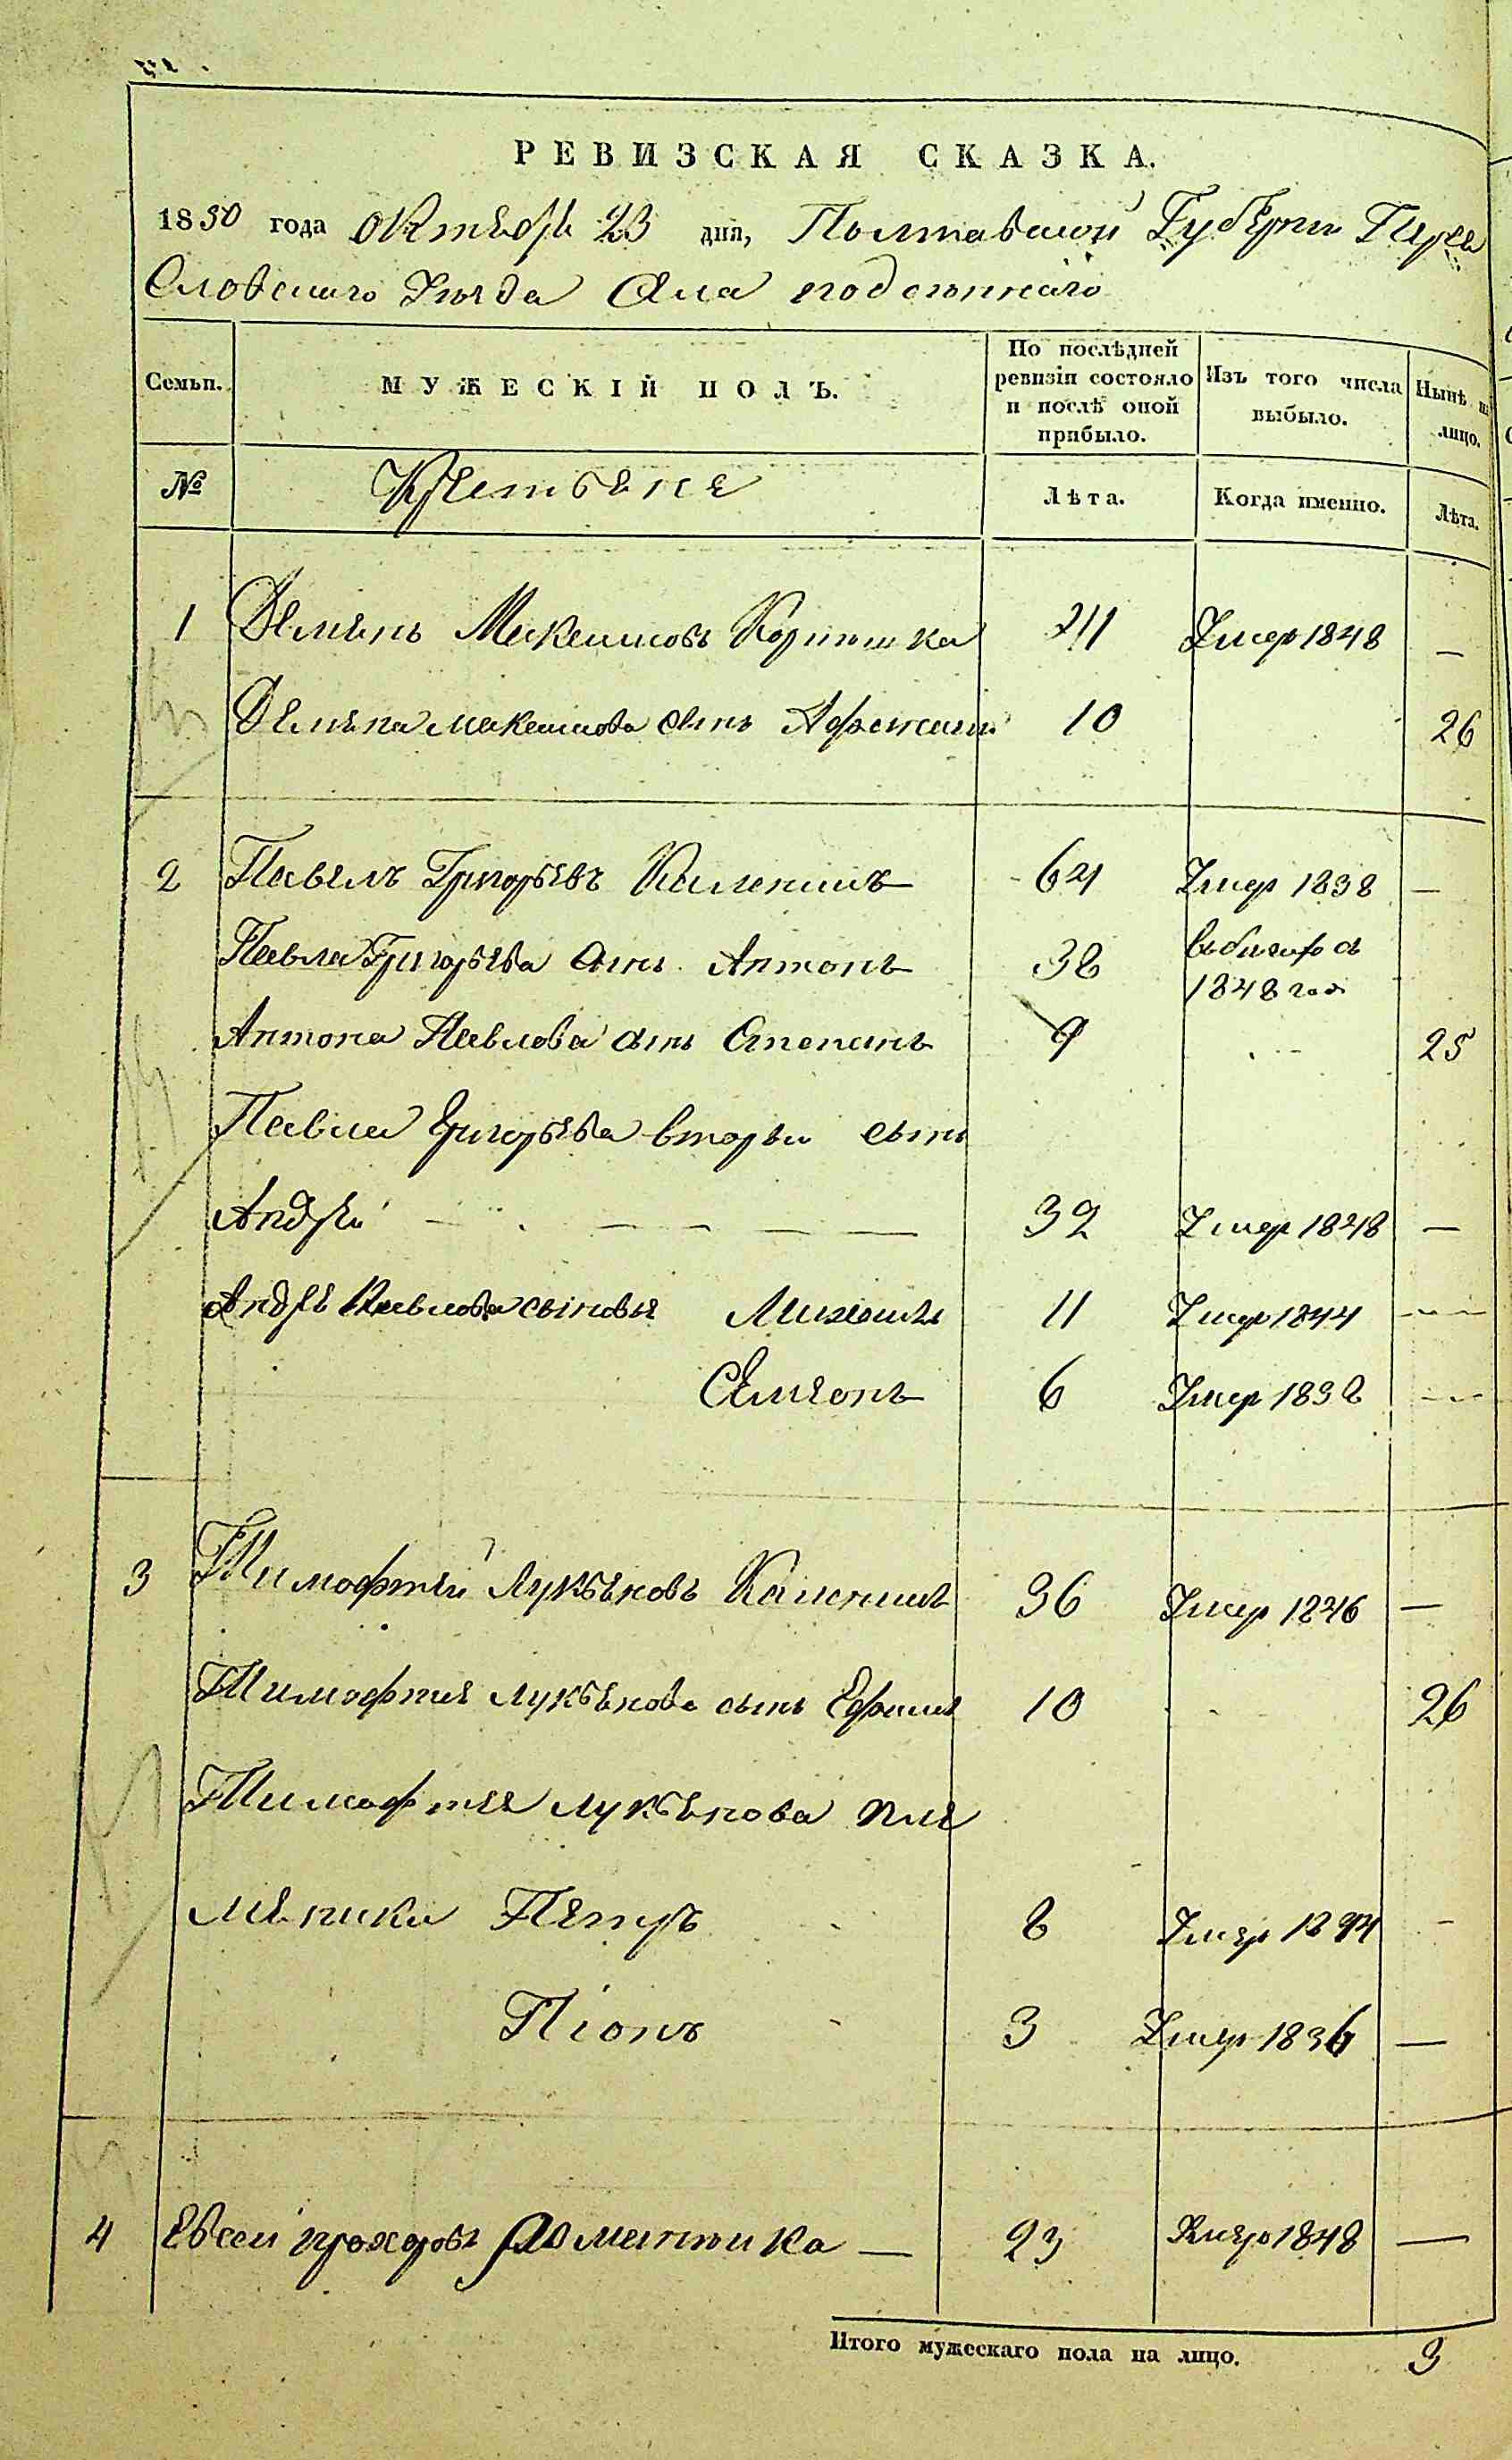 РЕВИЗСКАЯ СКАЗКА.
1850 года октября 23 дня, Полтавской Губерни Перея
словскаго Уезда Села
Семьи.
МУЖЕСКІЙ ПОЛЪ.
По послѣдней ревизіи состояло и послѣ оной прибыло.
Изъ того числа выбыло.
Нынѣ на лицо.
№
Крестьяне
Лѣта.
Когда именно.
Лѣта.
1 Демянъ Макеимовъ 41 Умер 1848 —
Демяна Макеимова сынъ 10 26
2 Павелъ Григорьевъ 64 Умер 1838 —
Павла Григорьева сынъ Антонъ 38
1848 год
Антона Павлова сынъ Степанъ 9 25
Павла Григорьева вторы сынъ
Андрей 32 Умер 1848 —
Андрея Павлова сыновья Михаилъ 11 Умер 1844
Семіонъ 6 Умер 1838
3 Тимофтей Лукьяновъ 36 Умер 1846 —
Тимофтея Лукьянова сынъ Ефимъ 10 26
Тимофтея Лукьянова пле
мяники Петръ 8 Умер 1844 -
Піонъ 3 Умер 1836 —
4 Евсей Прохоровъ — 23 Умер 1848 —
Итого мужескаго пола на лицо. 3